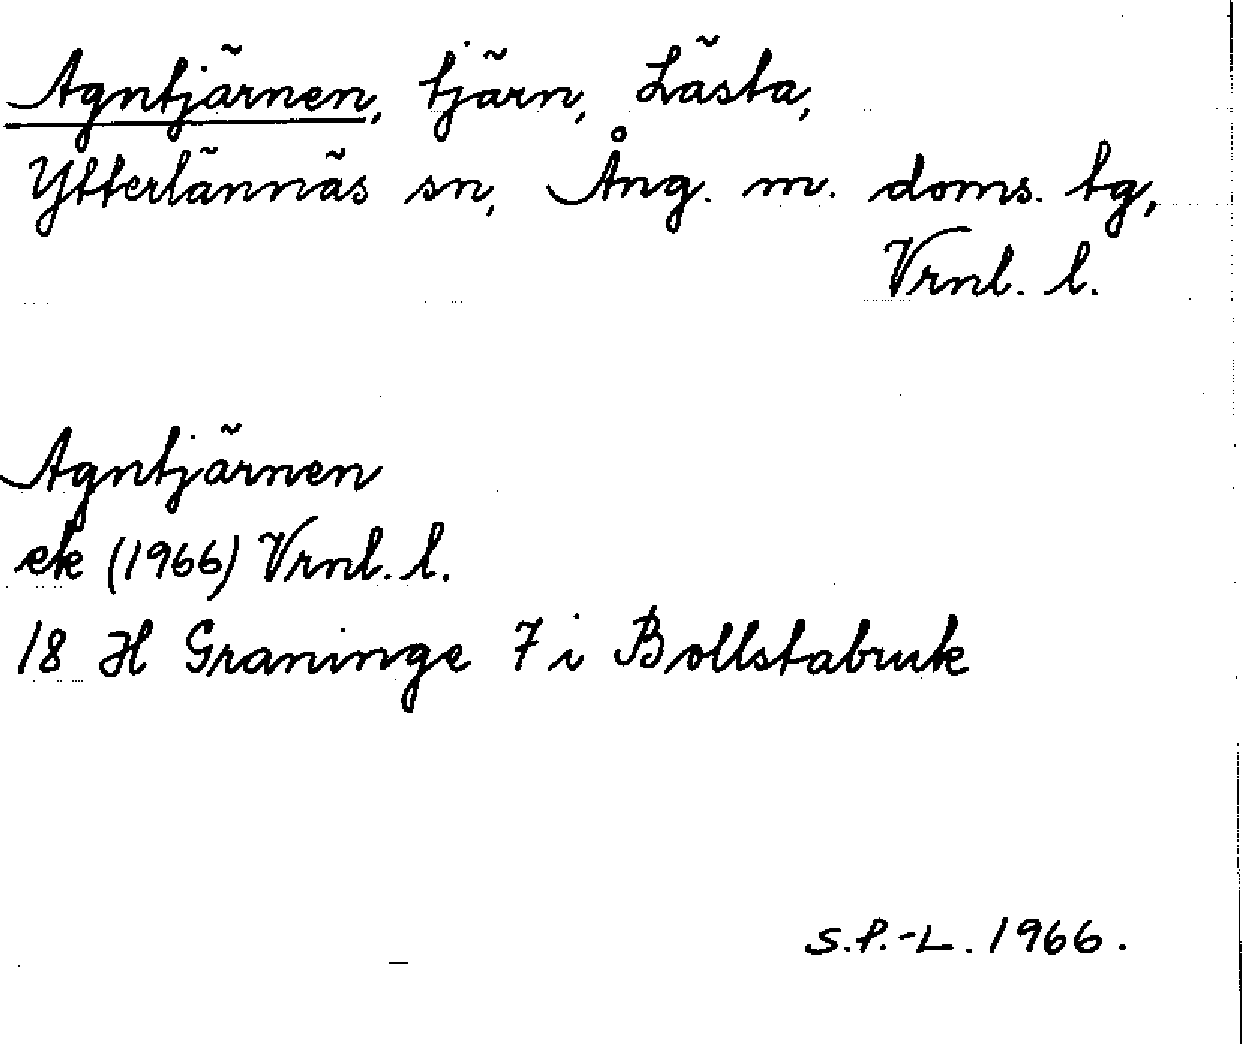 Agntjärnen, tjärn, Lästa,
Ytterlännäs sn, Ång. m. doms. tg,
Vrnl. l.
Agntjärnen
ek (1966) Vrnl. l.
18 H Graninge 7 i Bollstabruk
S.P.-L. 1966.